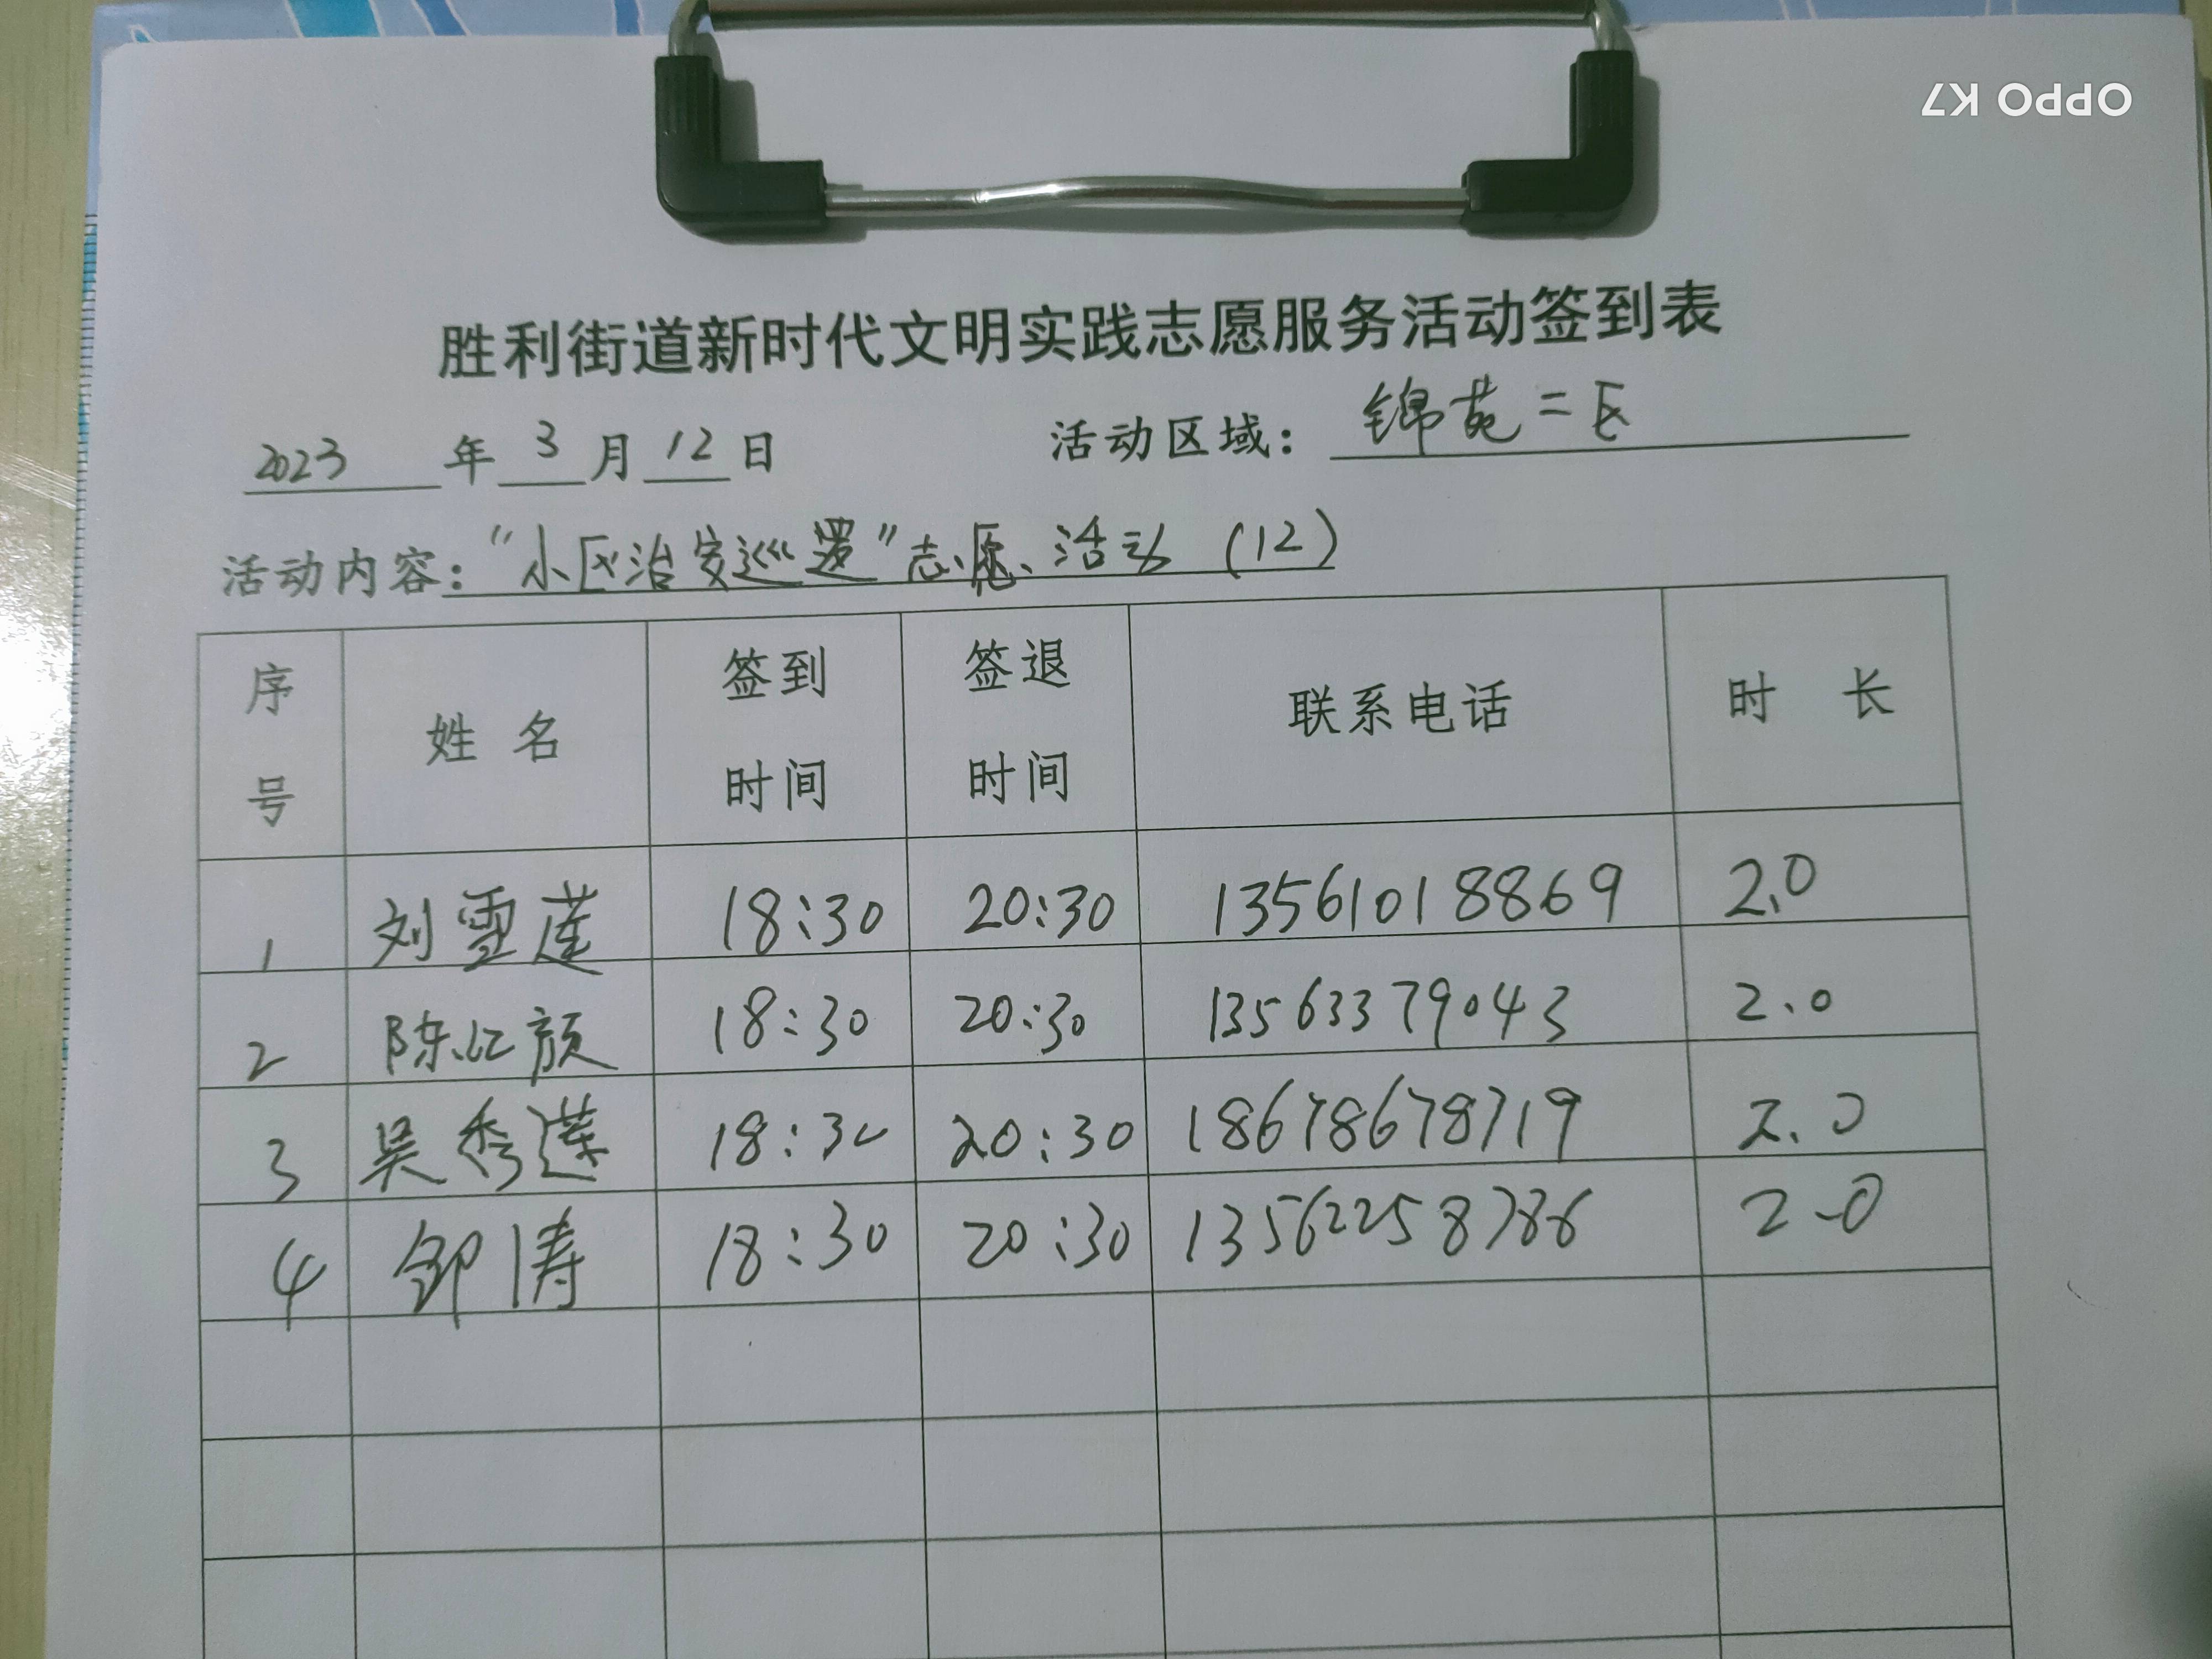 OPPO K7
胜利街道新时代文明实践志愿服务活动签到表
2023 年 3 月 12 日 活动区域： 锦苑二区
活动内容："小区治安巡逻"志愿活动 (12)
序号 姓名 签到时间 签退时间 联系电话 时长
1 刘雪莲 18:30 20:30 13561018869 2.0
2 陈红颜 18:30 20:30 13563379043 2.0
3 吴秀莲 18:30 20:30 18678678719 2.0
4 邹涛 18:30 20:30 13562258786 2.0